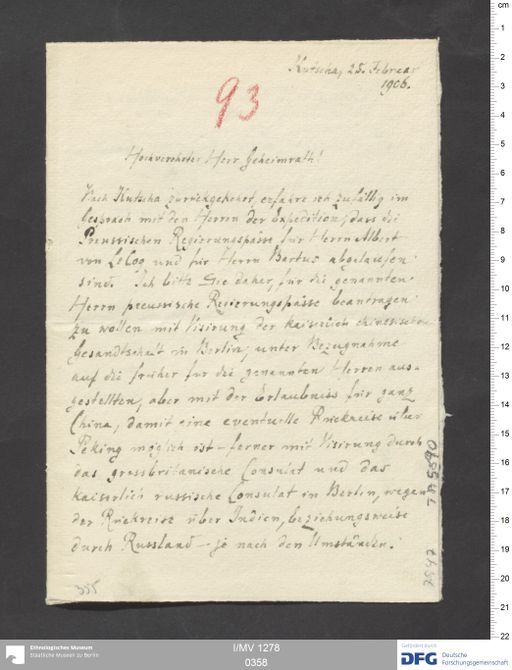 Kutscha, 25. Februar
1906.
93
Hochverehrter Herr Geheimrath!
Nach Kutscha zurückgekehrt, erfahre ich zufällig im
Gespräch mit den Herren der Expedition, dass die
Preussischen Regierungspässe für Herrn Albert
von LeCoq und für Herrn Bartus abgelaufen
sind. Ich bitte Sie daher, für die genannten
Herrn preussische Regierungspässe beantragen
zu wollen mit Visirung der kaiserlich chinesischen
Gesandtschaft in Berlin, unter Bezugnahme
auf die früher für die genannten Herren aus-
gestellten, aber mit der Erlaubniss für ganz
China, damit eine eventuelle Rückreise über
Peking möglich ist – ferner mit Visirung durch
das grossbritanische Consulat und das
kaiserlich russische Consulat in Berlin, wegen
der Rückreise über Indien, beziehungsweise
durch Russland – je nach den Umständen.
355
TA 5590
Ethnologisches Museum
Staatliche Museen zu Berlin
I/MV 1278
0358
Gefördert durch
DFG Deutsche
Forschungsgemeinschaft
cm
1
2
3
4
5
6
7
8
9
10
11
12
13
14
15
16
17
18
19
20
21
22